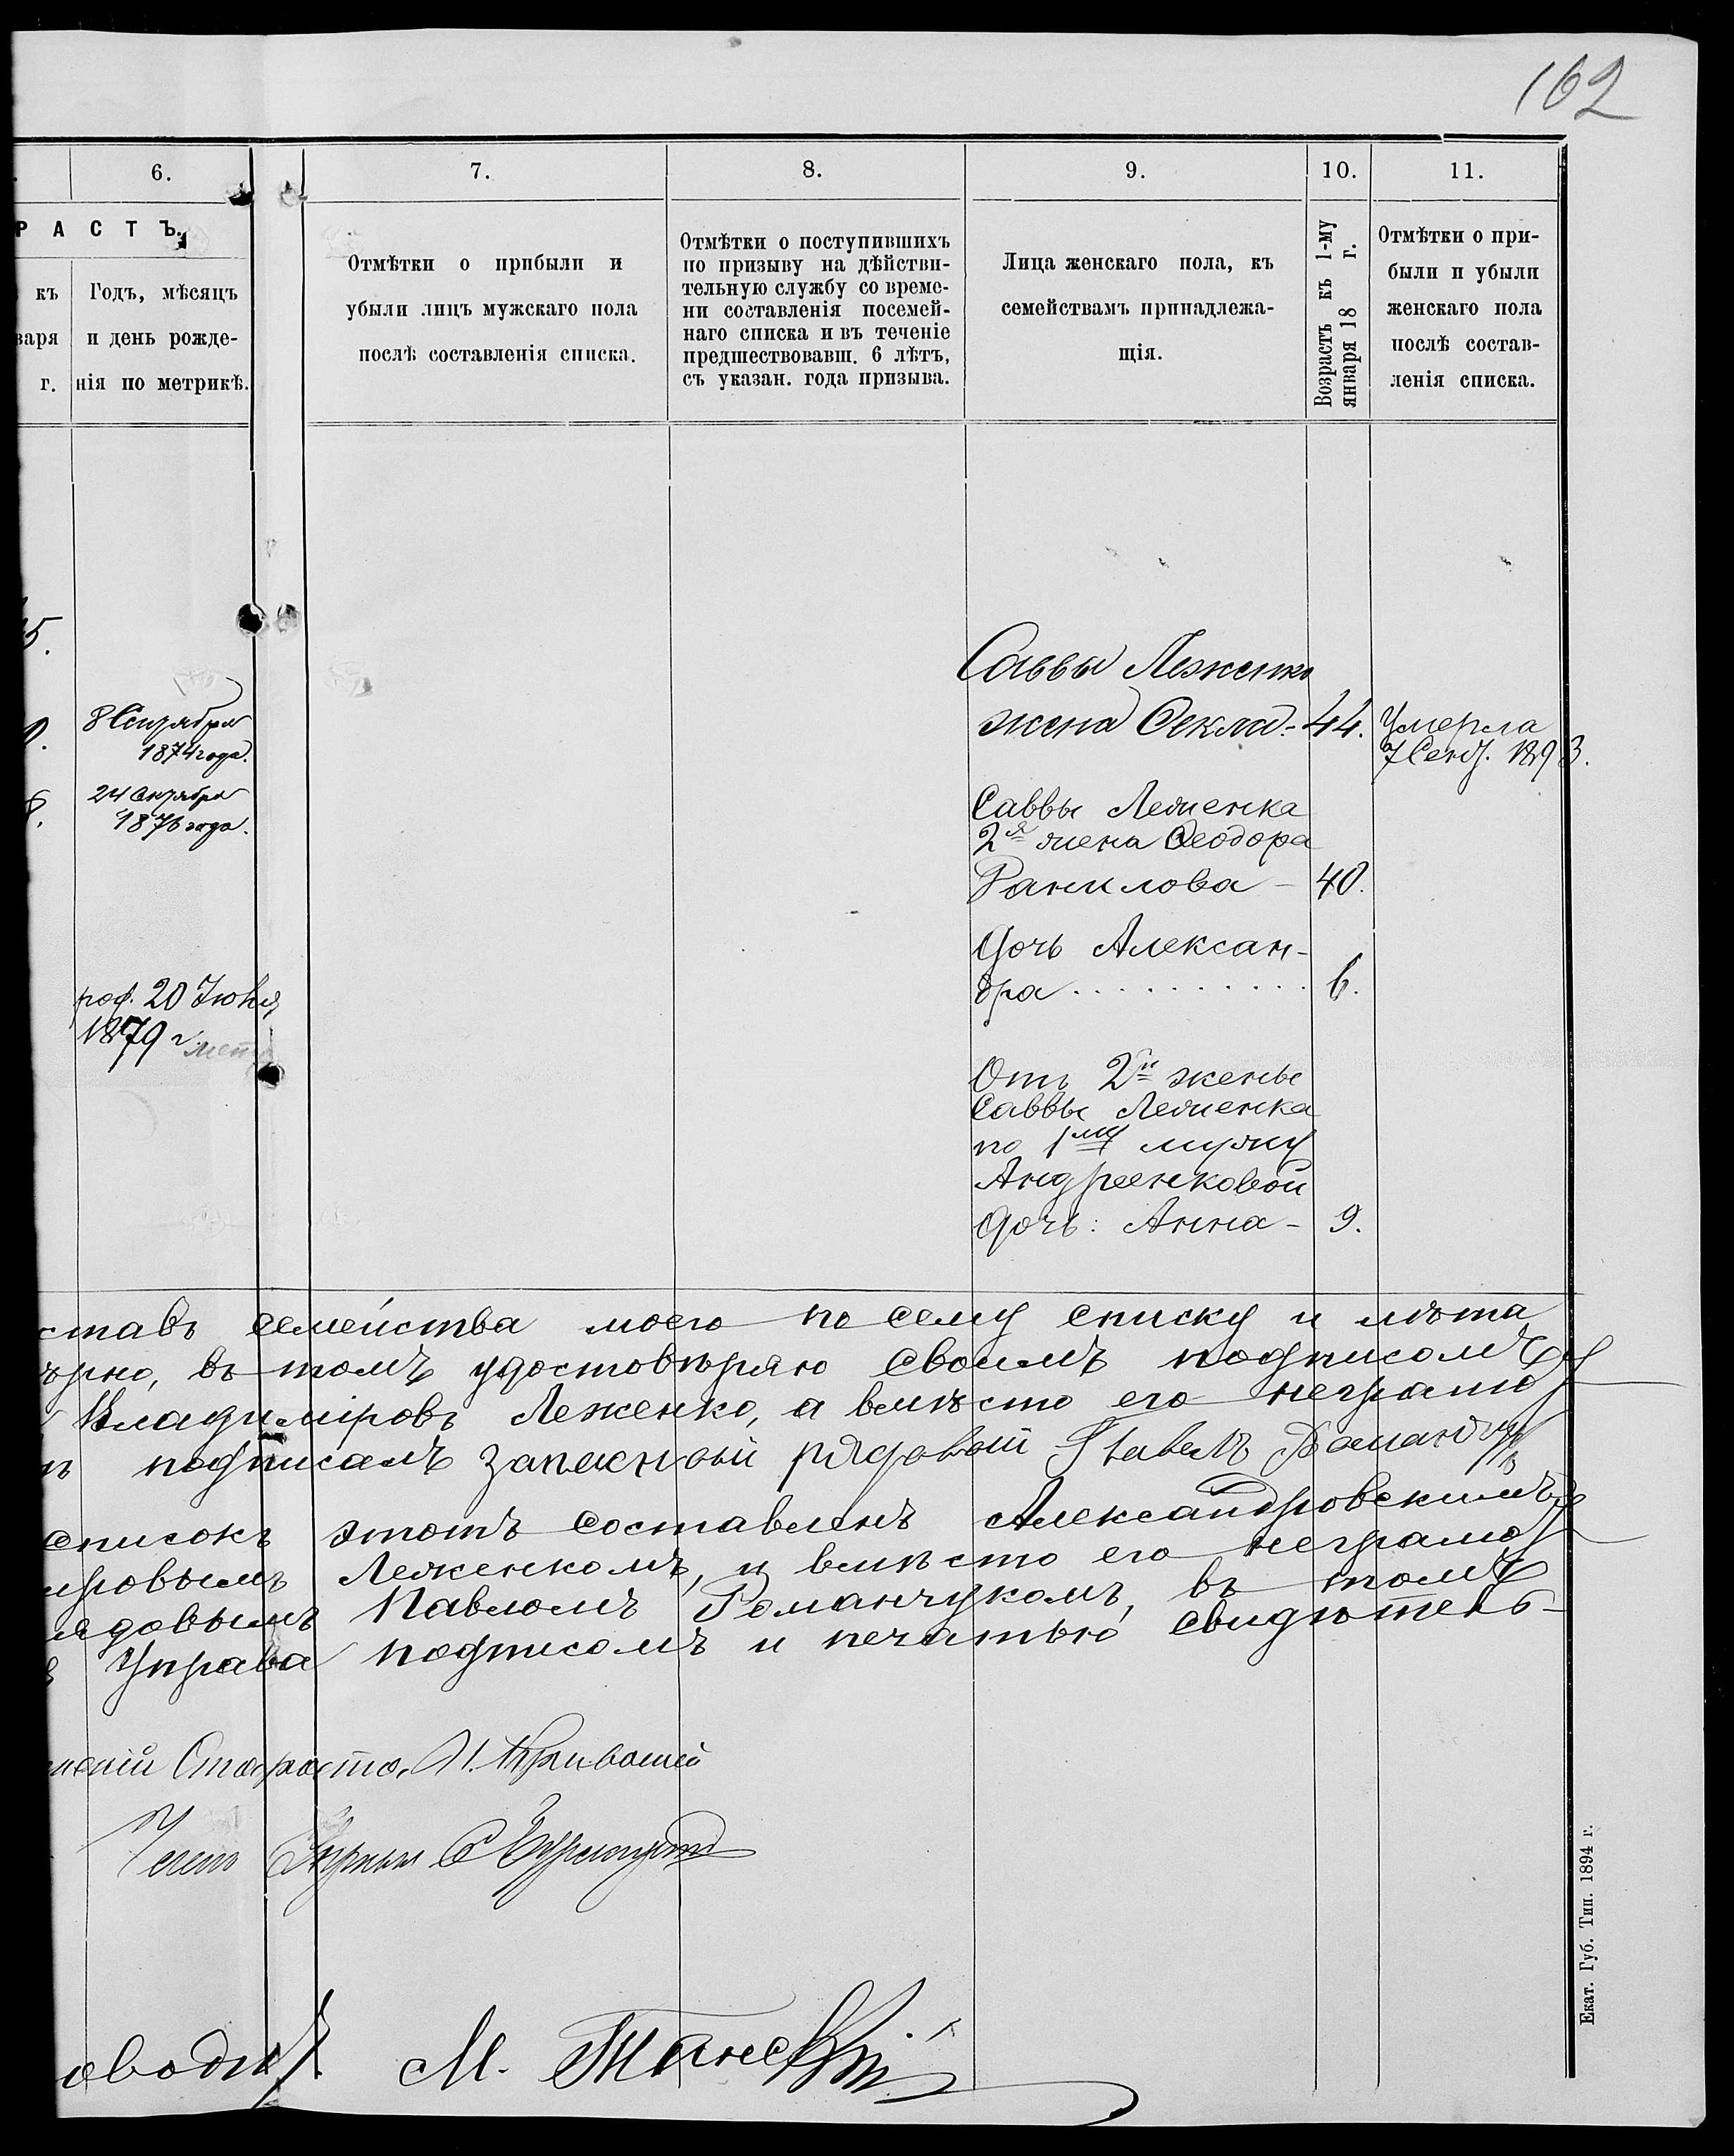 162
6.
7.
8.
9.
10.
11.
РАСТЪ.
къ
варя
г.
Годъ, мѣсяцъ
и день рожде-
нія по метрикѣ.
Отмѣтки о прибыли и
убыли лицъ мужскаго пола
послѣ составленія списка.
Отмѣтки о поступившихъ
по призыву на дѣйстви-
тельную службу со време-
ни составленія посемей-
наго списка и въ теченіе
предшествовавш. 6 лѣтъ,
съ указан. года призыва.
Лица женскаго пола, къ
семействамъ принадлежа-
щія.
Возрастъ къ 1-му
января 18 г.
Отмѣтки о при-
были и убыли
женскаго пола
послѣ состав-
ленія списка.
5.
8
1874 года.
24
1876 года.
род. 20 Іюня
1879 г.
Саввы Леженко
жена Ѳекла - 44.
Умерла
7 Сент. 1893.
Саввы Леженка
2я жена Ѳеодора
Данилова - 40.
Дочь Алексан-
дра . . . . . . . . . . . 6.
Отъ 2й жены
Саввы Леженка
по 1му мужу
Андреенковой
Дочь: Анна - 9.
ставъ семейства моего по сему списку и лѣта
ѣрно, въ томъ удостовѣряю своимъ подписомъ
Владиміровъ Леженко, а вмѣсто его неграмо
подписалъ запасный рядовой Павелъ
списокъ этотъ составленъ Александровскимъ
ировымъ Леженкомъ, и вмѣсто его неграмо
ядовымъ Павломъ Романчукомъ, въ томъ
Управа подписомъ и печатью свидѣтель-
Староста И. Кривошей
М.
Екат. Губ. Тип. 1894 г.